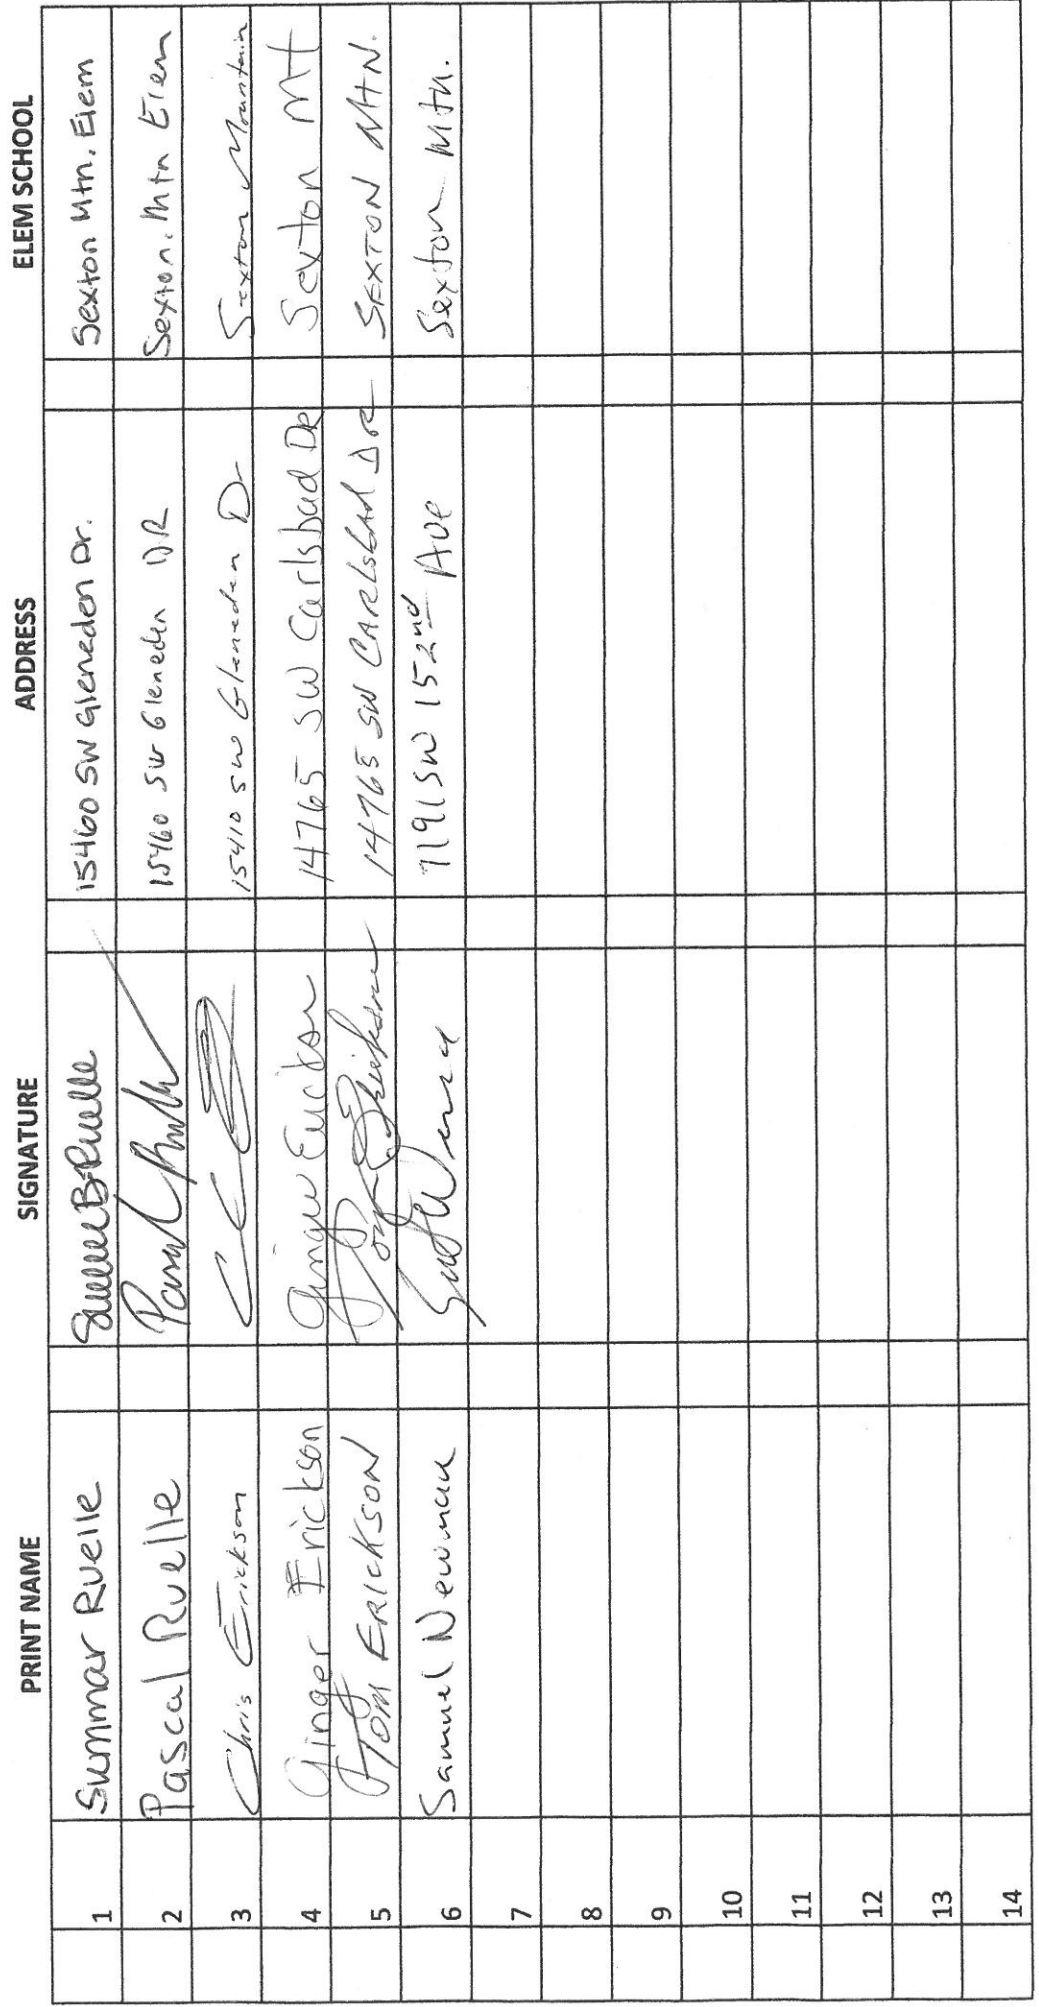 PRINT NAME SIGNATURE ADDRESS ELEM SCHOOL
1 Summar Ruelle Summar B. Ruelle 15460 SW Gleneden Dr. Sexton Mtn. Elem
2 Pascal Ruelle 15460 SW Gleneden DR Sexton. Mtn Elem
3 Chris Erickson 15410 SW Gleneden Dr Sexton Mountain
4 Ginger Erickson Ginger Erickson 14765 SW Carlsbad DR Sexton Mt
5 TOM ERICKSON Tom Erickson 14765 SW CARLSBAD DR SEXTON MTN.
6 Samuel Newman 7191 SW 152nd Ave Sexton Mtn.
7
8
9
10
11
12
13
14